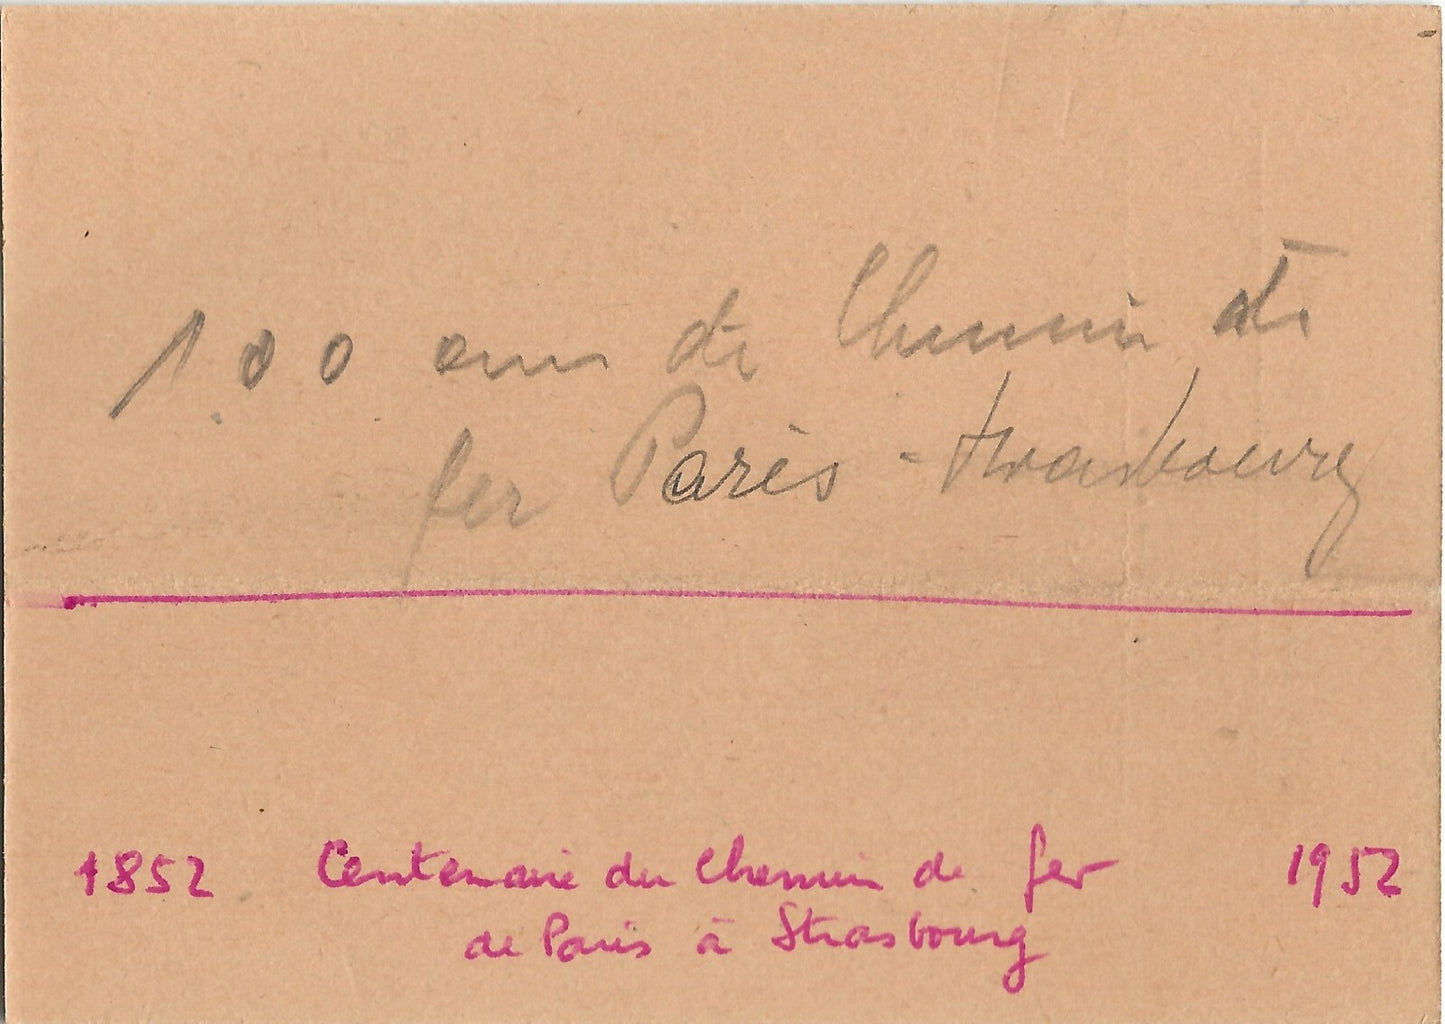 100 ans de Chemin de
fer Paris - Strasbourg
1852 Centenaire du Chemin de fer 1952
de Paris à Strasbourg